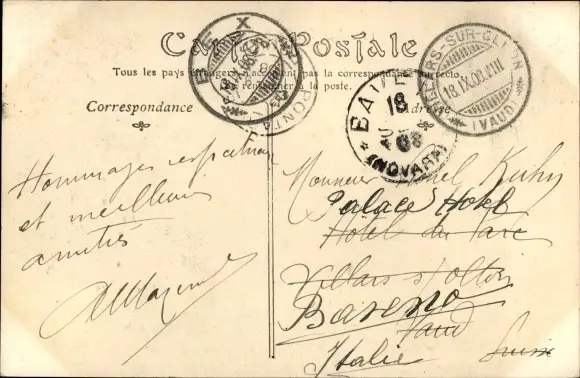 Carte Postale
Tous les pays étrangers n'acceptent pas la correspondance au recto.
Se renseigner à la poste.
Correspondance
Adresse
BEX
VILLARS-SUR-OLLON
18.IX.08.VIII
(VAUD)
BAVENO
18
08
(NOVARA)
Hommages respectueux
et meilleures
amitiés
Monsieur Kuhn
Palace Hotel
Hôtel du Parc
Villars s/Ollon
Baveno
Vaud
Italie
Suisse